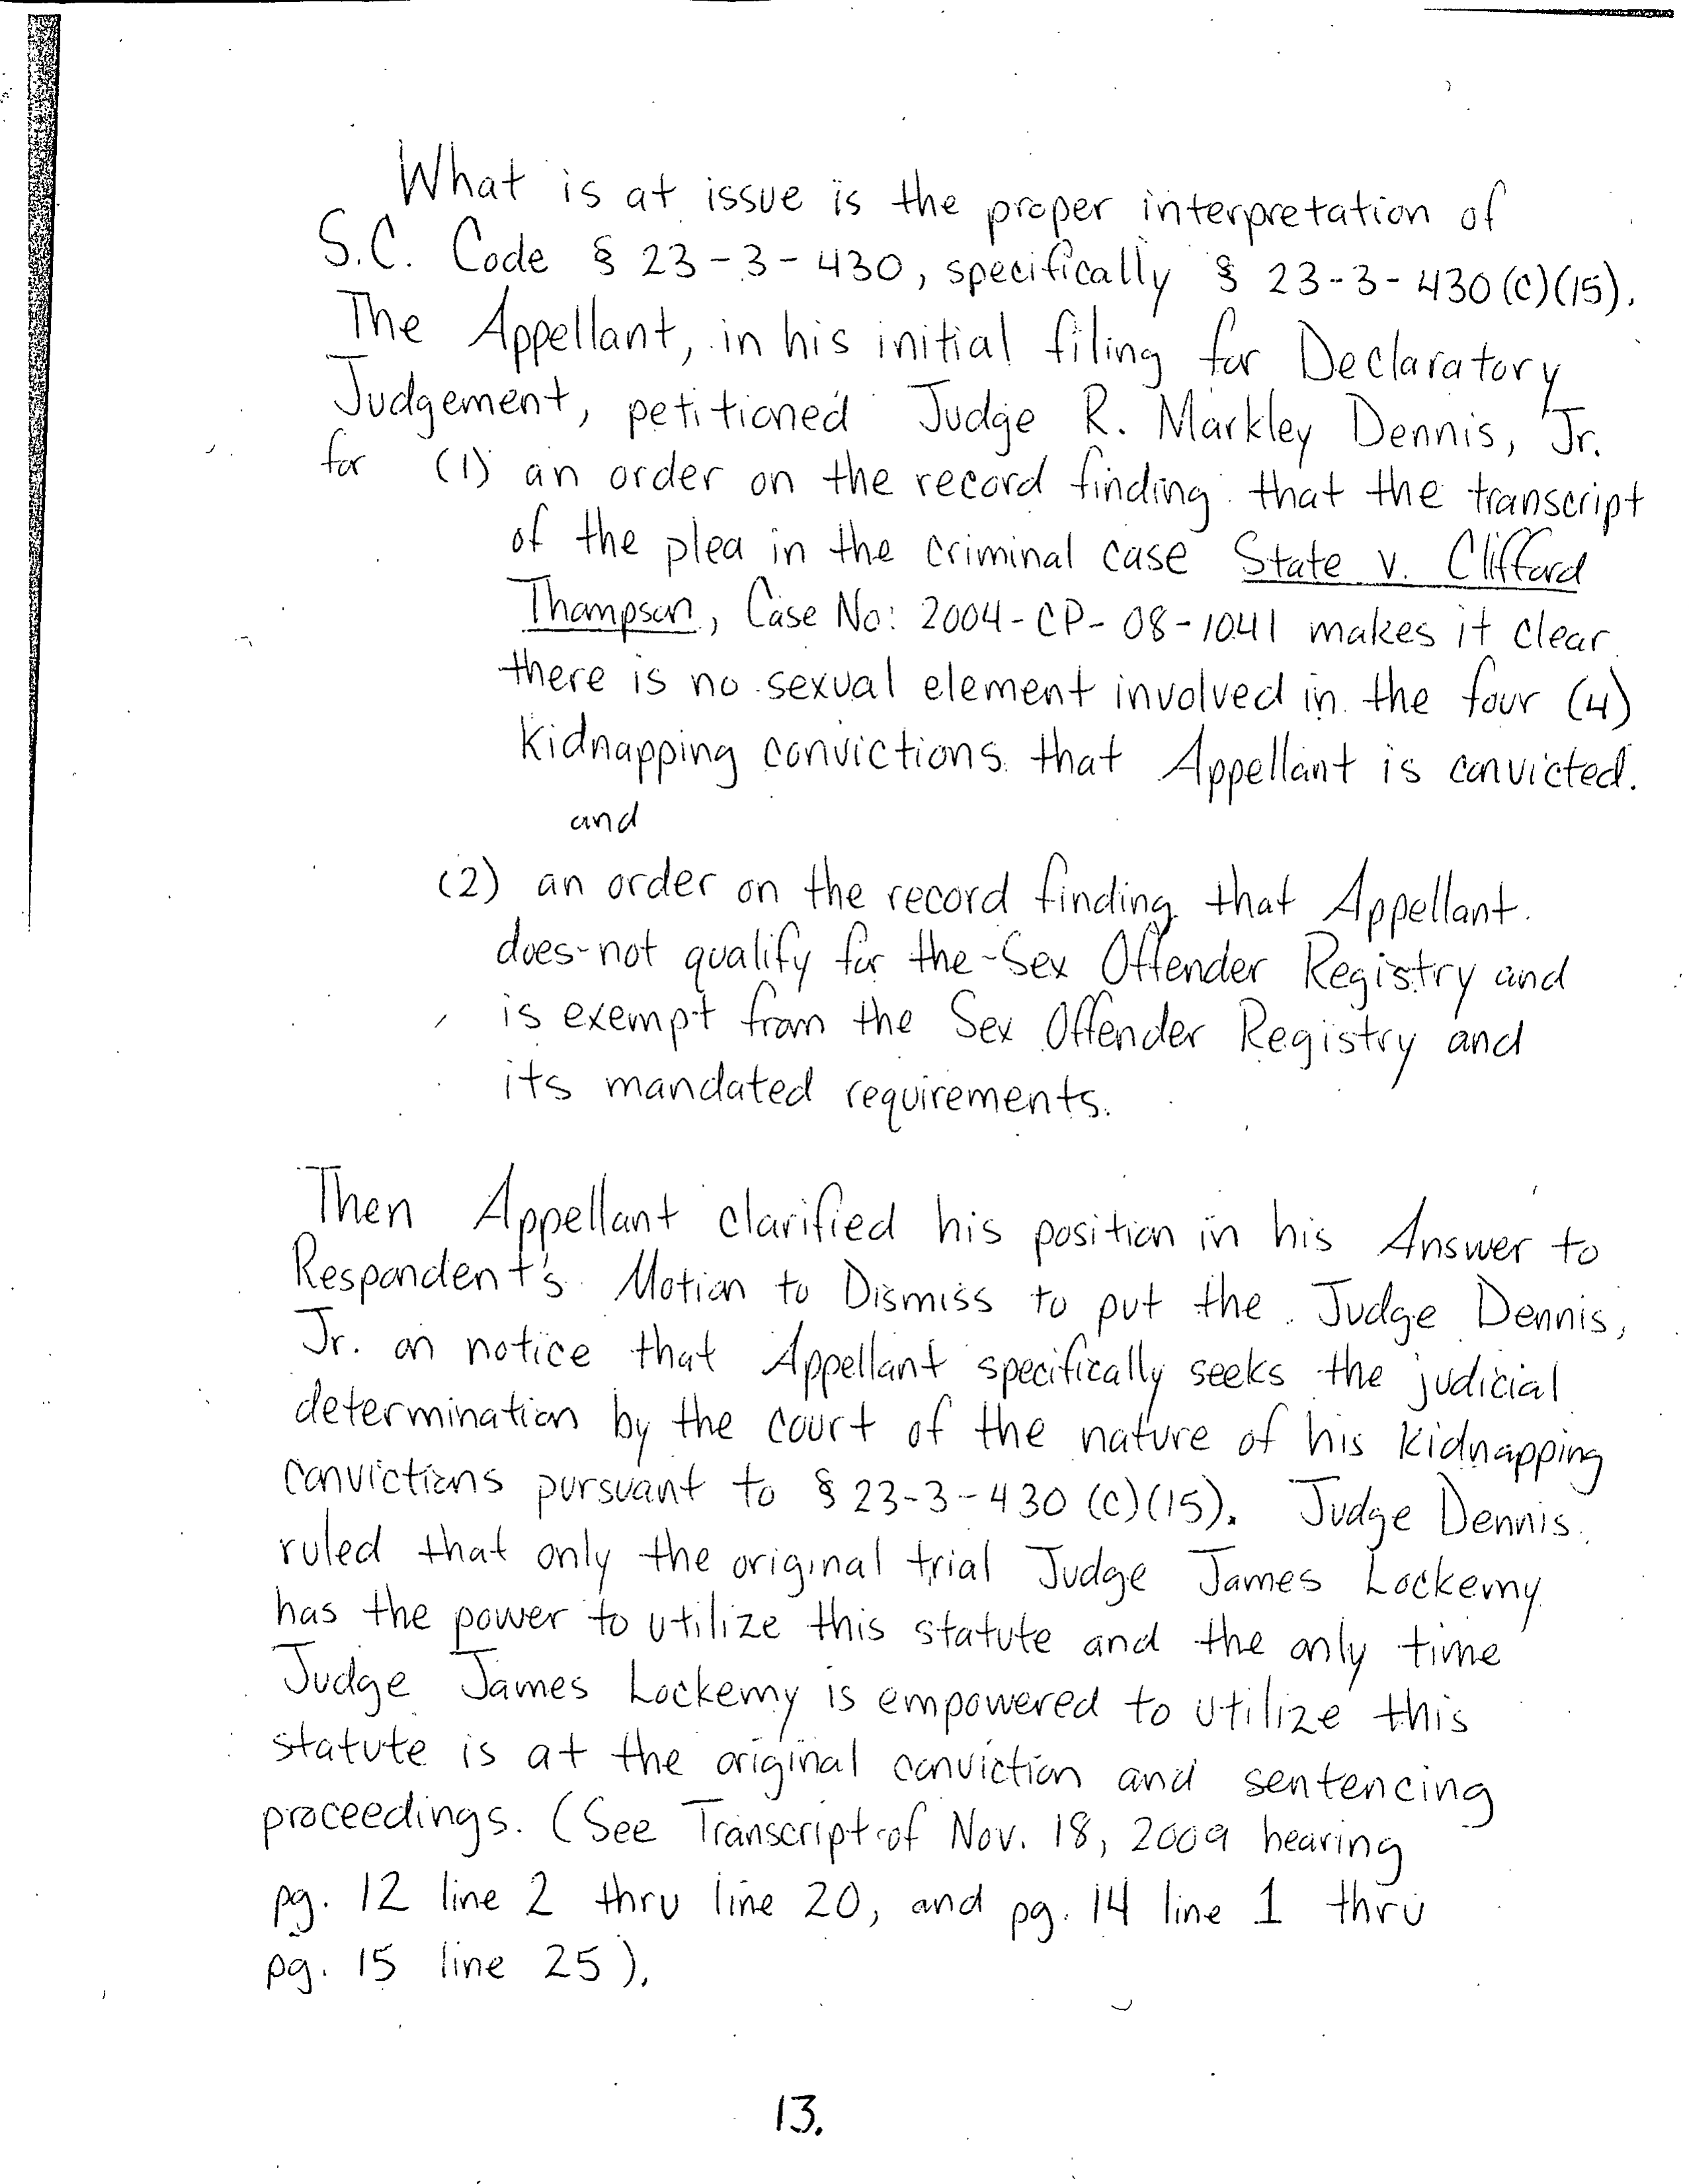 What is at issue is the proper interpretation of
S.C. Code § 23-3-430, specifically § 23-3-430(C)(15).
The Appellant, in his initial filing for Declaratory
Judgement, petitioned Judge R. Markley Dennis, Jr.
for (1) an order on the record finding that the transcript
of the plea in the criminal case State v. Clifford
Thompson, Case No: 2004-CP-08-1041 makes it clear
there is no sexual element involved in the four (4)
kidnapping convictions that Appellant is convicted.
and
(2) an order on the record finding that Appellant
does-not qualify for the-Sex Offender Registry and
is exempt from the Sex Offender Registry and
its mandated requirements.
Then Appellant clarified his position in his Answer to
Respondent's Motion to Dismiss to put the Judge Dennis,
Jr. on notice that Appellant specifically seeks the judicial
determination by the court of the nature of his kidnapping
convictions pursuant to § 23-3-430 (C)(15). Judge Dennis
ruled that only the original trial Judge James Lockemy
has the power to utilize this statute and the only time
Judge James Lockemy is empowered to utilize this
statute is at the original conviction and sentencing
proceedings. (See Transcript of Nov. 18, 2009 hearing
pg. 12 line 2 thru line 20, and pg. 14 line 1 thru
pg. 15 line 25).
13.